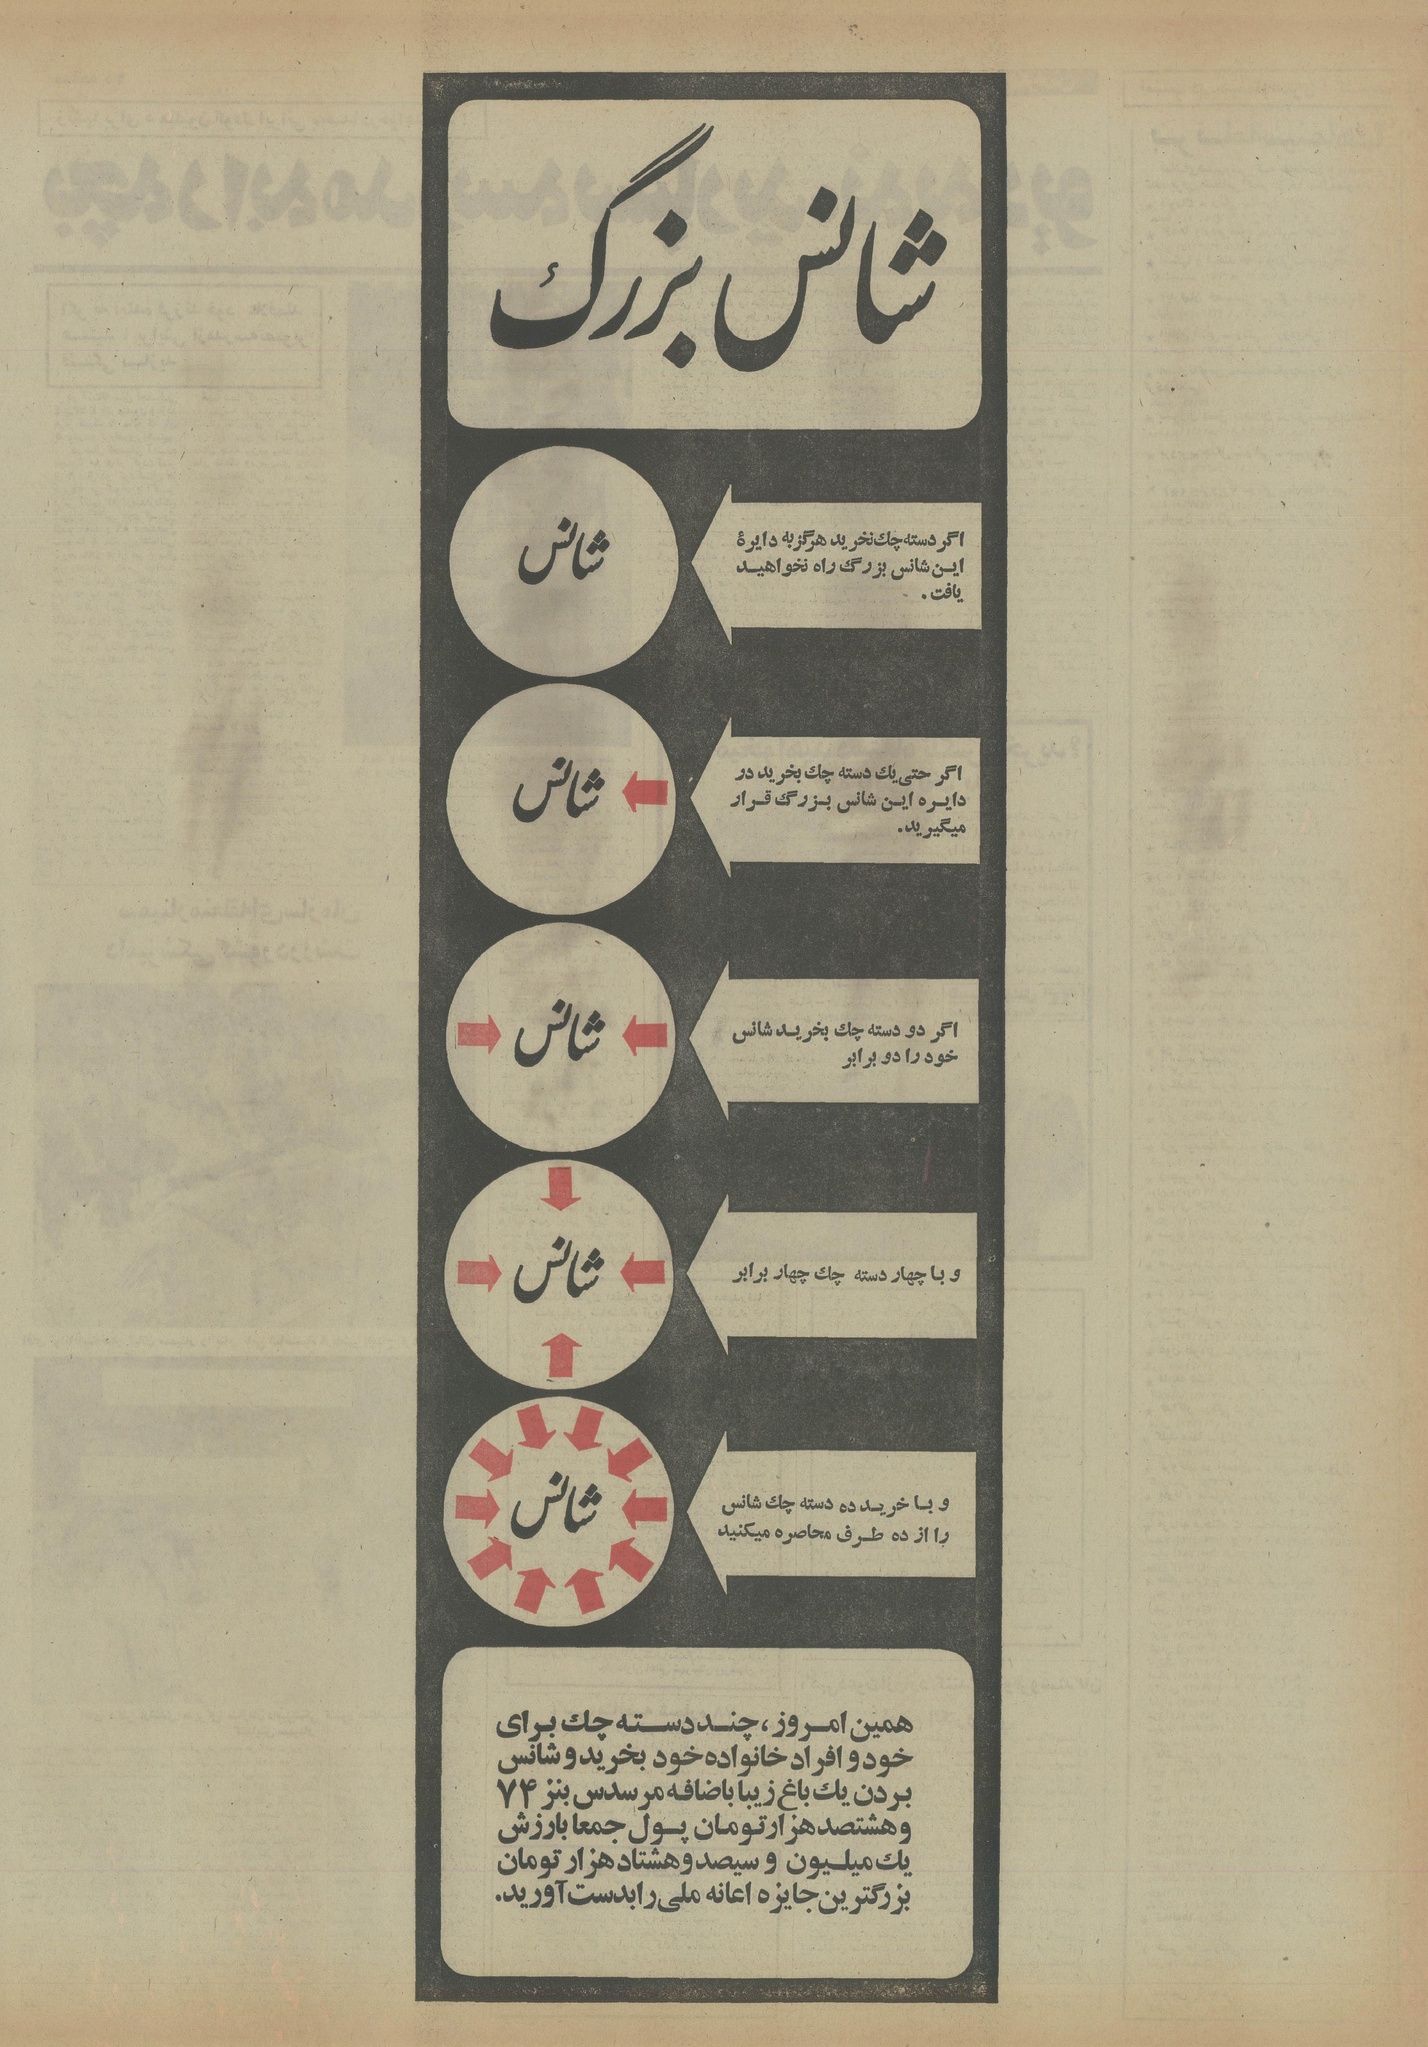 شانس بزرگ
اگر دسته چك نخرید هرگز به دایرهٔ
این شانس بزرگ راه نخواهید
یافت.
شانس
اگر حتی یك دسته چك بخرید در
دایره این شانس بزرگ قرار
میگیرید.
شانس
اگر دو دسته چك بخرید شانس
خود را دو برابر
شانس
و با چهار دسته چك چهار برابر
شانس
و با خرید ده دسته چك شانس
را از ده طرف محاصره میکنید
شانس
همین امروز، چند دسته چك برای
خود و افراد خانواده خود بخرید و شانس
بردن یك باغ زیبا باضافه مرسدس بنز ۷۴
و هشتصد هزار تومان پول جمعا بارزش
یك میلیون و سیصد و هشتاد هزار تومان
بزرگترین جایزه اعانه ملی را بدست آورید.